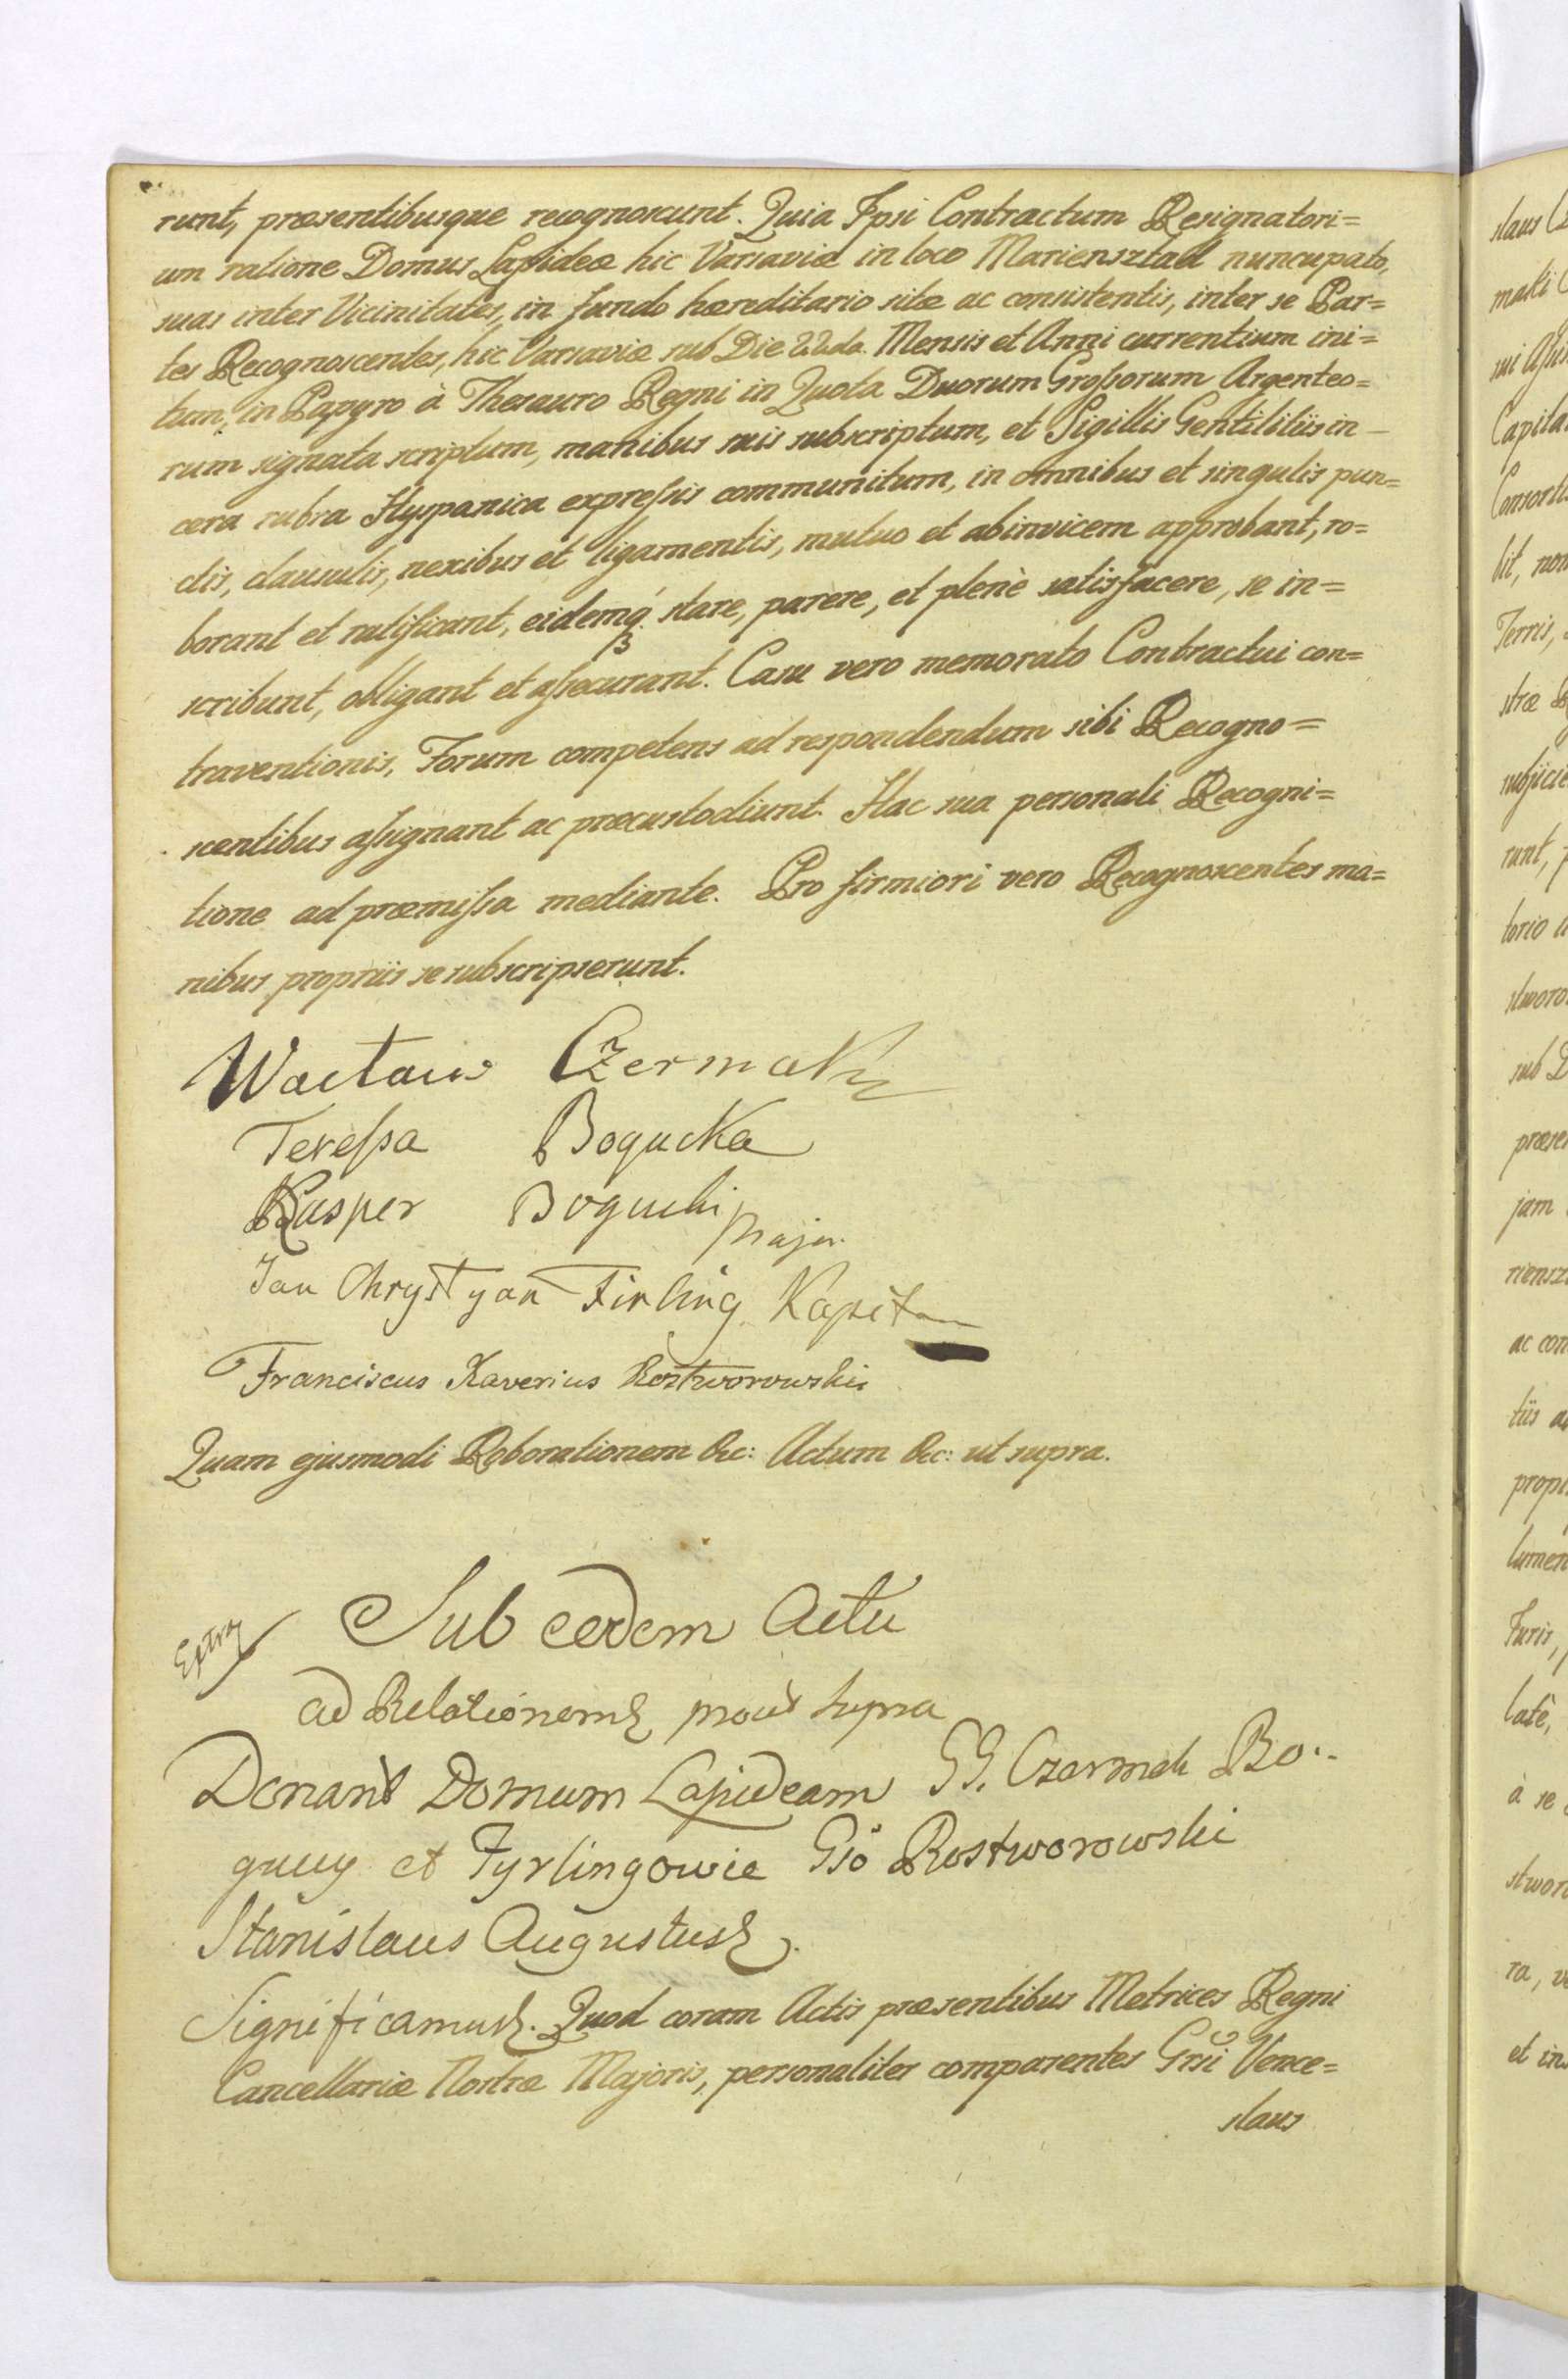 runt, præsentibusque recognoscunt. Quia Ipsi Contractum Resignatori=
um ratione Domus Lapideæ hic Varsaviæ in loco Mariensztad nuncupato,
suas inter Vicinitates, in fundo hæreditario sitæ ac consistentis, inter se Par=
tes Recognoscentes, hic Varsaviæ sub Die 22da. Mensis et Anni currentium ini=
tum, in Papyro à Thesauro Regni in Quota Duorum Grossorum Argenteo=
rum signata scriptum, manibus suis subscriptum, et Sigillis Gentilitiis in
cera rubra Hyspanica expressis communitum, in omnibus et singulis pun=
ctis, clausulis, nexibus et ligamentis, mutuo et abinvicem approbant, ro=
borant et ratificant, eidemq́ stare, parere, et plenè satisfacere, se in=
scribunt, obligant et assecurant. Casu vero memorato Contractui con=
traventionis, Forum competens ad respondendum sibi Recogno=
scentibus assignant ac præcustodiunt. Hac sua personali Recogni=
tione ad præmissa mediante. Pro firmiori vero Recognoscentes ma=
nibus propriis se subscripserunt.
Wacław Czermak
Teressa Bogucka
Kasper Bogucki Major
Jan Chrystyan Firling Kapitan
Franciscus Xaverius Rostworowski
Quam ejusmodi Roborationem &c: Actum &c: ut supra.
Extra
Sub eodem Actu
ad Relationem prout supra
Donant Domum Lapideam GG. Czermak Bo=
guccy et Fyrlingowie Gso Rostworowski
Stanislaus Augustus
Significamus. Quod coram Actis præsentibus Metrices Regni
Cancellariæ Nostræ Majoris, personaliter comparentes Grsi Vence=
slaus
slaus
Capita
Terris,
runt,
sub
jam
ac con
Juris,
à se
ra,